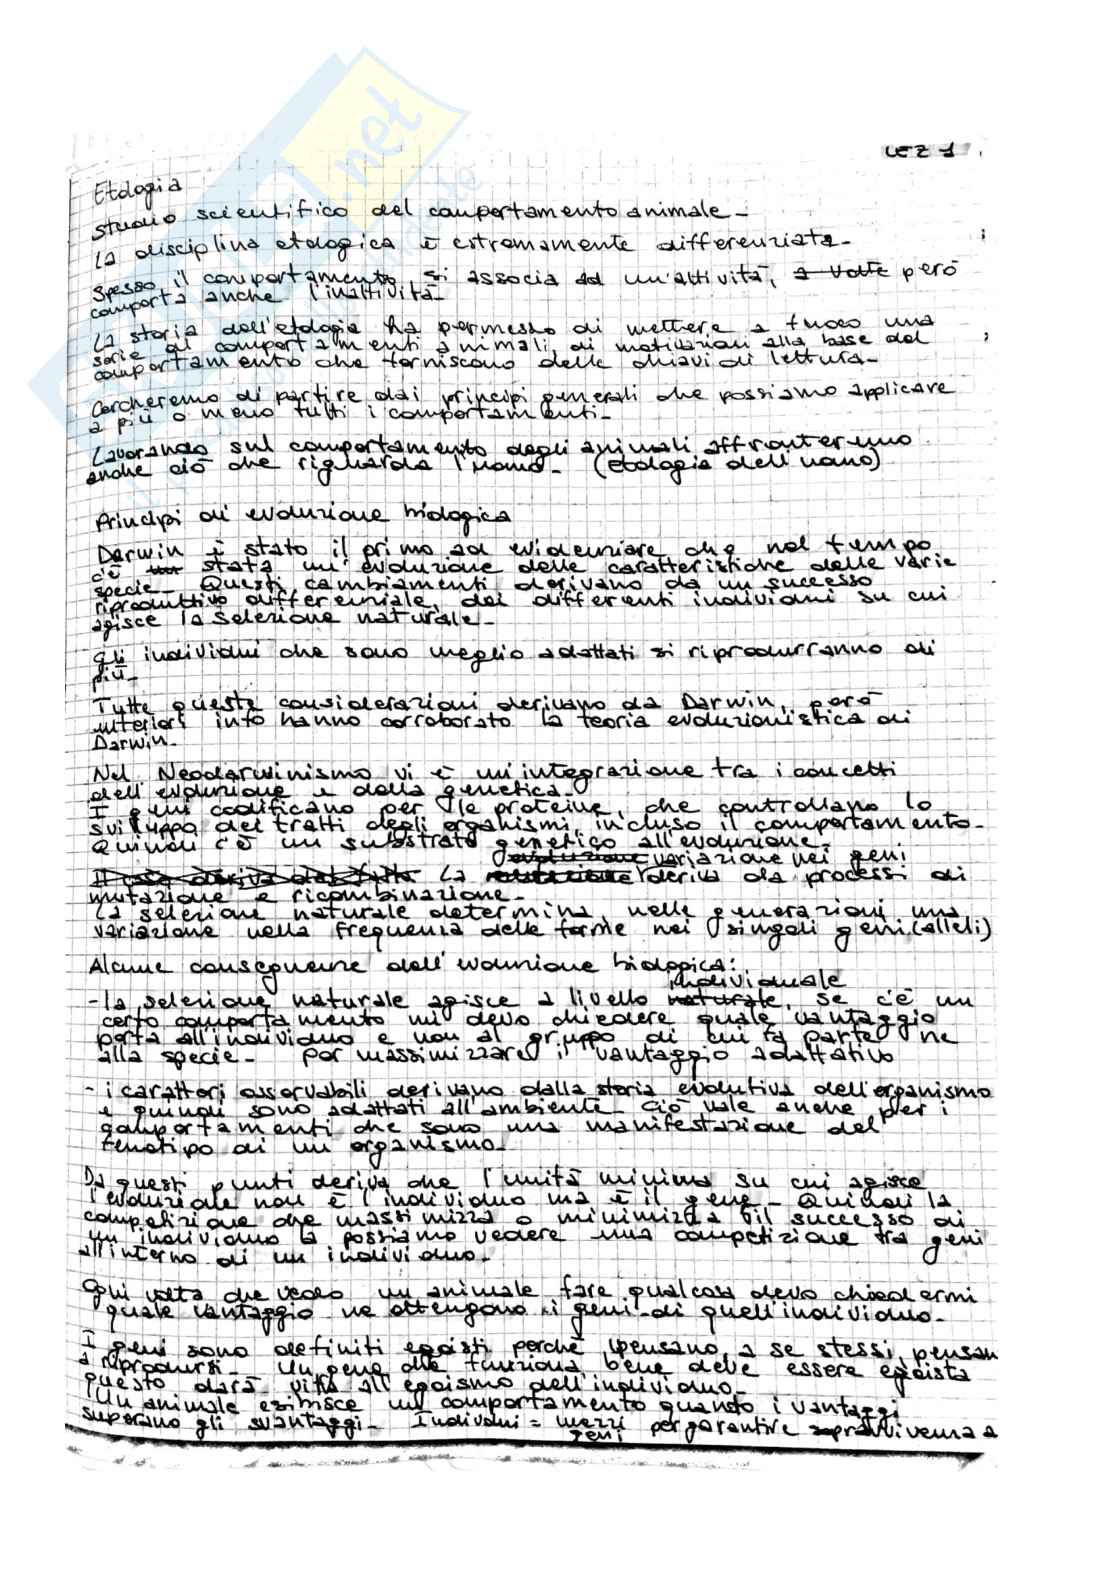 LEZ 1
Etologia
studio scientifico del comportamento animale-
La disciplina etologica è estramamente differenziata-
Spesso il comportamento si associa ad un'attività, a volte però
comporta anche l'inattività-
La storia dell'etologia ha permesso di mettere a fuoco una
serie di comportamenti animali, di motivazioni alla base del
comportamento che forniscono delle chiavi di lettura-
Cercheremo di partire dai principi generali che possiamo applicare
a più o meno tutti i comportamenti-
Lavorando sul comportamento degli animali affronteremo
anche ciò che riguarda l'uomo- (etologia dell'uomo)
Principi di evoluzione biologica
Darwin è stato il primo ad evidenziare che nel tempo
c'è stata un'evoluzione delle caratteristiche delle varie
specie- Questi cambiamenti derivano da un successo
riproduttivo differenziale, dei differenti individui su cui
agisce la selezione naturale-
gli individui che sono meglio adattati si riprodurranno di
più-
Tutte queste considerazioni derivano da Darwin, però
ulteriori info hanno corroborato la teoria evoluzionistica di
Darwin-
Nel Neodarwinismo vi è un'integrazione tra i concetti
dell'evoluzione e della genetica-
I geni codificano per le proteine, che controllano lo
sviluppo dei tratti degli organismi, incluso il comportamento-
Quindi c'è un substrato genetico all'evoluzione.
evoluzione variazione nei geni
La deriva da processi di
mutazione e ricombinazione-
La selezione naturale determina, nelle generazioni, una
variazione nella frequenza delle forme nei singoli geni (alleli)
Alcune conseguenze dell'evoluzione biologica:
individuale
-la selezione naturale agisce a livello naturale, se c'è un
certo comportamento mi devo chiedere quale vantaggio
porta all'individuo e non al gruppo di cui fa parte nè
alla specie- per massimizzare il vantaggio adattativo
- i caratteri osservabili derivano dalla storia evolutiva dell'organismo
e quindi sono adattati all'ambiente- ciò vale anche per i
comportamenti che sono una manifestazione del
fenotipo di un organismo-
Da questi punti deriva che l'unità minima su cui agisce
l'evoluzione non è l'individuo ma è il gene- Quindi la
competizione che massimizza o minimizza il successo di
un individuo la possiamo vedere una competizione tra geni
all'interno di un individuo-
Ogni volta che vedo un animale fare qualcosa devo chiedermi
quale vantaggio ne ottengono i geni di quell'individuo-
I geni sono definiti egoisti perché pensano a se stessi, pensan
a riprodursi- Un gene che funziona bene deve essere egoista
questo darà vita all'egoismo dell'individuo-
Un animale esibisce un comportamento quando i vantaggi
superano gli svantaggi- Individui = mezzi per garantire sopravvivenza a
geni